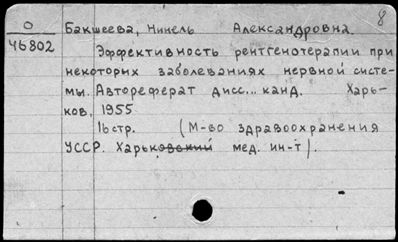 8
О
46802
Бакшеева, Нинель Александровна.
Эффективность рентгенотерапии при
некоторых заболеваниях нервной систе-
мы. Автореферат дисс... канд. Харь-
ков, 1955
16 стр. (М-во здравоохранения
УССР. Харьковский мед. ин-т).